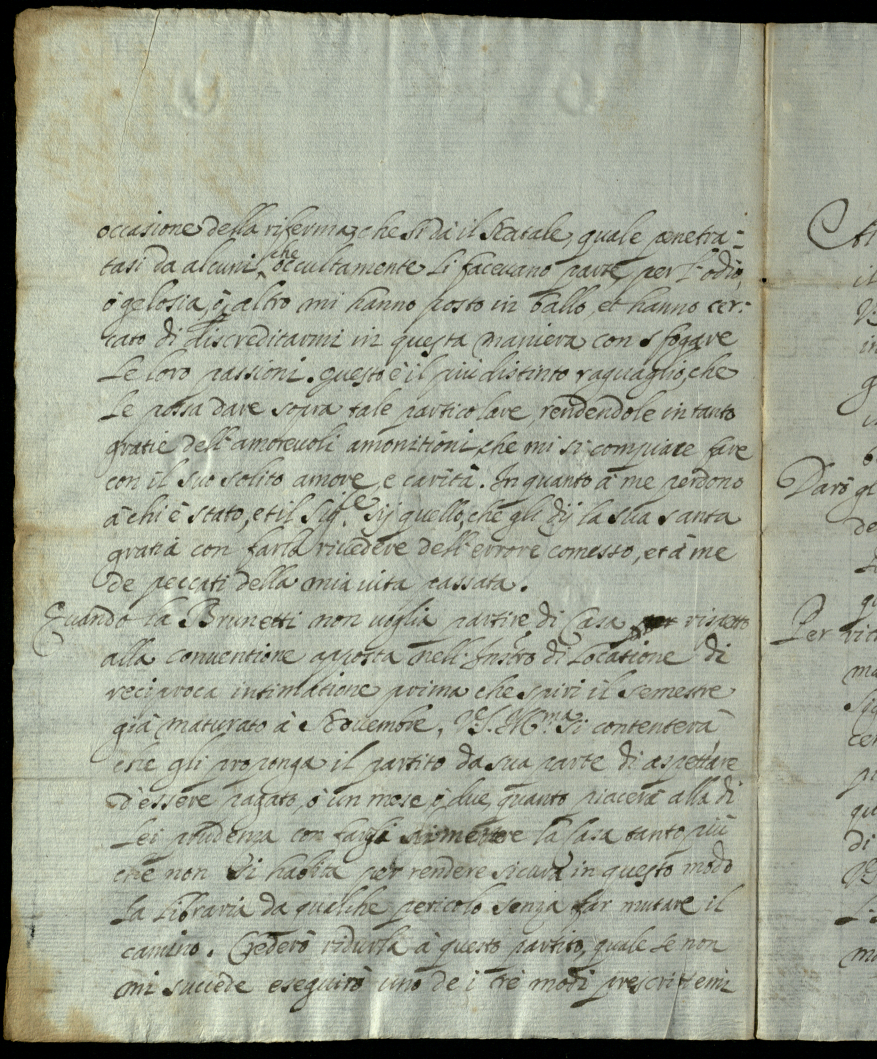 occasione della riferma, che si dà il Natale, quale penetra-
tasi da alcuni, che occultamente Li facevano parte, per l'odio,
ò gelosia, ò altro mi hanno posto in ballo, et hanno cer-
cato di discreditarmi in questa maniera con sfogare
Le loro passioni. questo è il più distinto raguaglio, che
Le possa dare sopra tale particolare, rendendole in tanto
gratie dell'amorevoli amonitioni, che mi si compiace fare
con il suo solito amore, e carità. In quanto à me perdono
à chi è stato, et il Sig.re sij quello, che gli dij la sua santa
gratia con farla rivedere dell'errore comesso, et à me
de peccati della mia vita passata.
Quando la Brunetti non voglia partire di Casa rispetto
alla conventione apposta nell'Instro di Locatione di
reciproca intimatione prima che spiri il semestre
già maturato à Novembre, V.S. Ill.ma si contenterà
che gli proponga il partito da sua parte di aspettare
d'essere pagato, ò un mese ò due, quanto piacerà alla di
Lei prudenza con fargli la Casa tanto più
che non si habbia per rendere sicura in questo modo
La Libraria da qualche pericolo senza far mutare il
camino. Crederò ridurla à questo partito, quale se non
mi succede eseguirò uno de i trè modi prescrittemi
Darò gl
de
Per
di